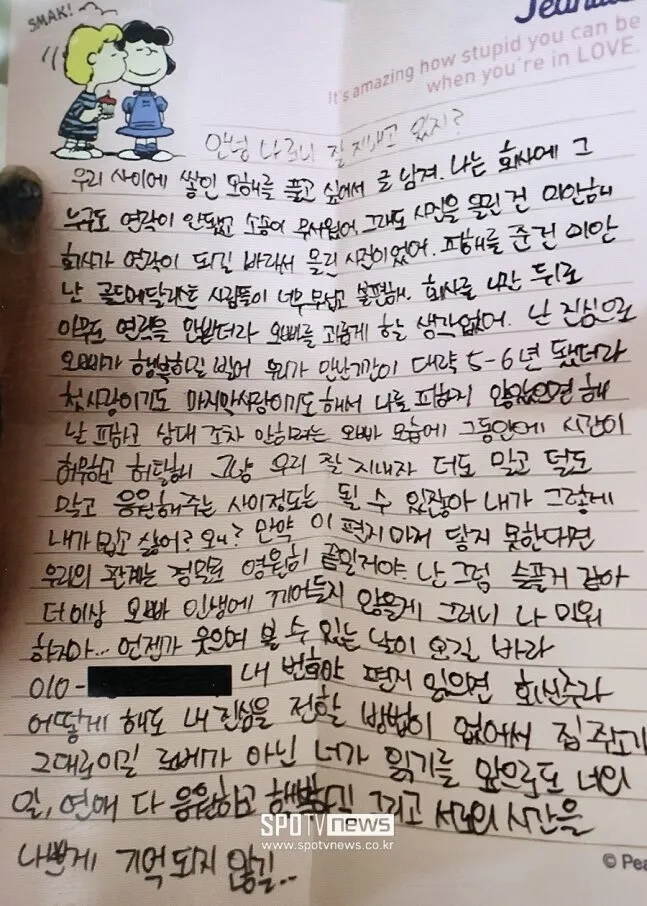 SMAK!
It's amazing how stupid you can be
when you're in LOVE.
안녕 나 잘 지내고 있지?
우리 사이에 쌓인 오해를 풀고 싶어서 글 남겨. 나는 회사에 그
누구도 연락이 안됐고 소송이 무서웠어. 그래도 사진을 올린 건 미안해
회사가 연락이 되길 바래서 올린 사진이었어. 피해를 준건 미안
난 골드메달리스트 사람들이 너무 무섭고 불편해. 회사를 나간 뒤로
아무도 연락을 안받더라 오빠를 괴롭게 할 생각없어. 난 진심으로
오빠가 행복하길 빌어 우리가 만난기간이 대략 5-6년 됐더라
첫사랑이기도 마지막사랑이기도 해서 나를 피하지 않았으면 해
날 피하고 상대 조차 안하려는 오빠 모습에 그동안에 시간이
허무하고 허탈해 그냥 우리 잘 지내자 더도 말고 덜도
말고 응원해주는 사이정도는 될 수 있잖아 내가 그렇게
내가 밉고 싫어? 왜? 만약 이 편지마저 닿지 못한다면
우리의 관계는 정말로 영원히 끝일거야. 난 그럼 슬플거 같아
더이상 오빠 인생에 끼어들지 않을게 그러니 나 미워
하지마... 언젠가 웃으며 볼 수 있는 날이 오길 바라
010- 내 번호야 편지 읽으면 회신주라
어떻게 해도 내 진심을 전할 방법이 없어서 집 주소가
그대로이길 로베가 아닌 너가 읽기를 앞으로도 너의
일, 연애 다 응원하고 그리고 서로의 시간을
SPOTV NEWS
www.spotvnews.co.kr
나쁘게 기억되지 않길...